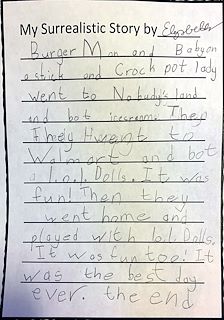 My Surrealistic Story by Elizabella
Burger Man and Babyon
a stick and Crock pot lady
went to Nobudy's land
and bot icecream. Then
They went to
Walmart and bot
a l.o.l. Dolls. It was
fun! Then they
went home and
played with l.o.l Dolls.
It was fun too! It
was the best day
ever. the end